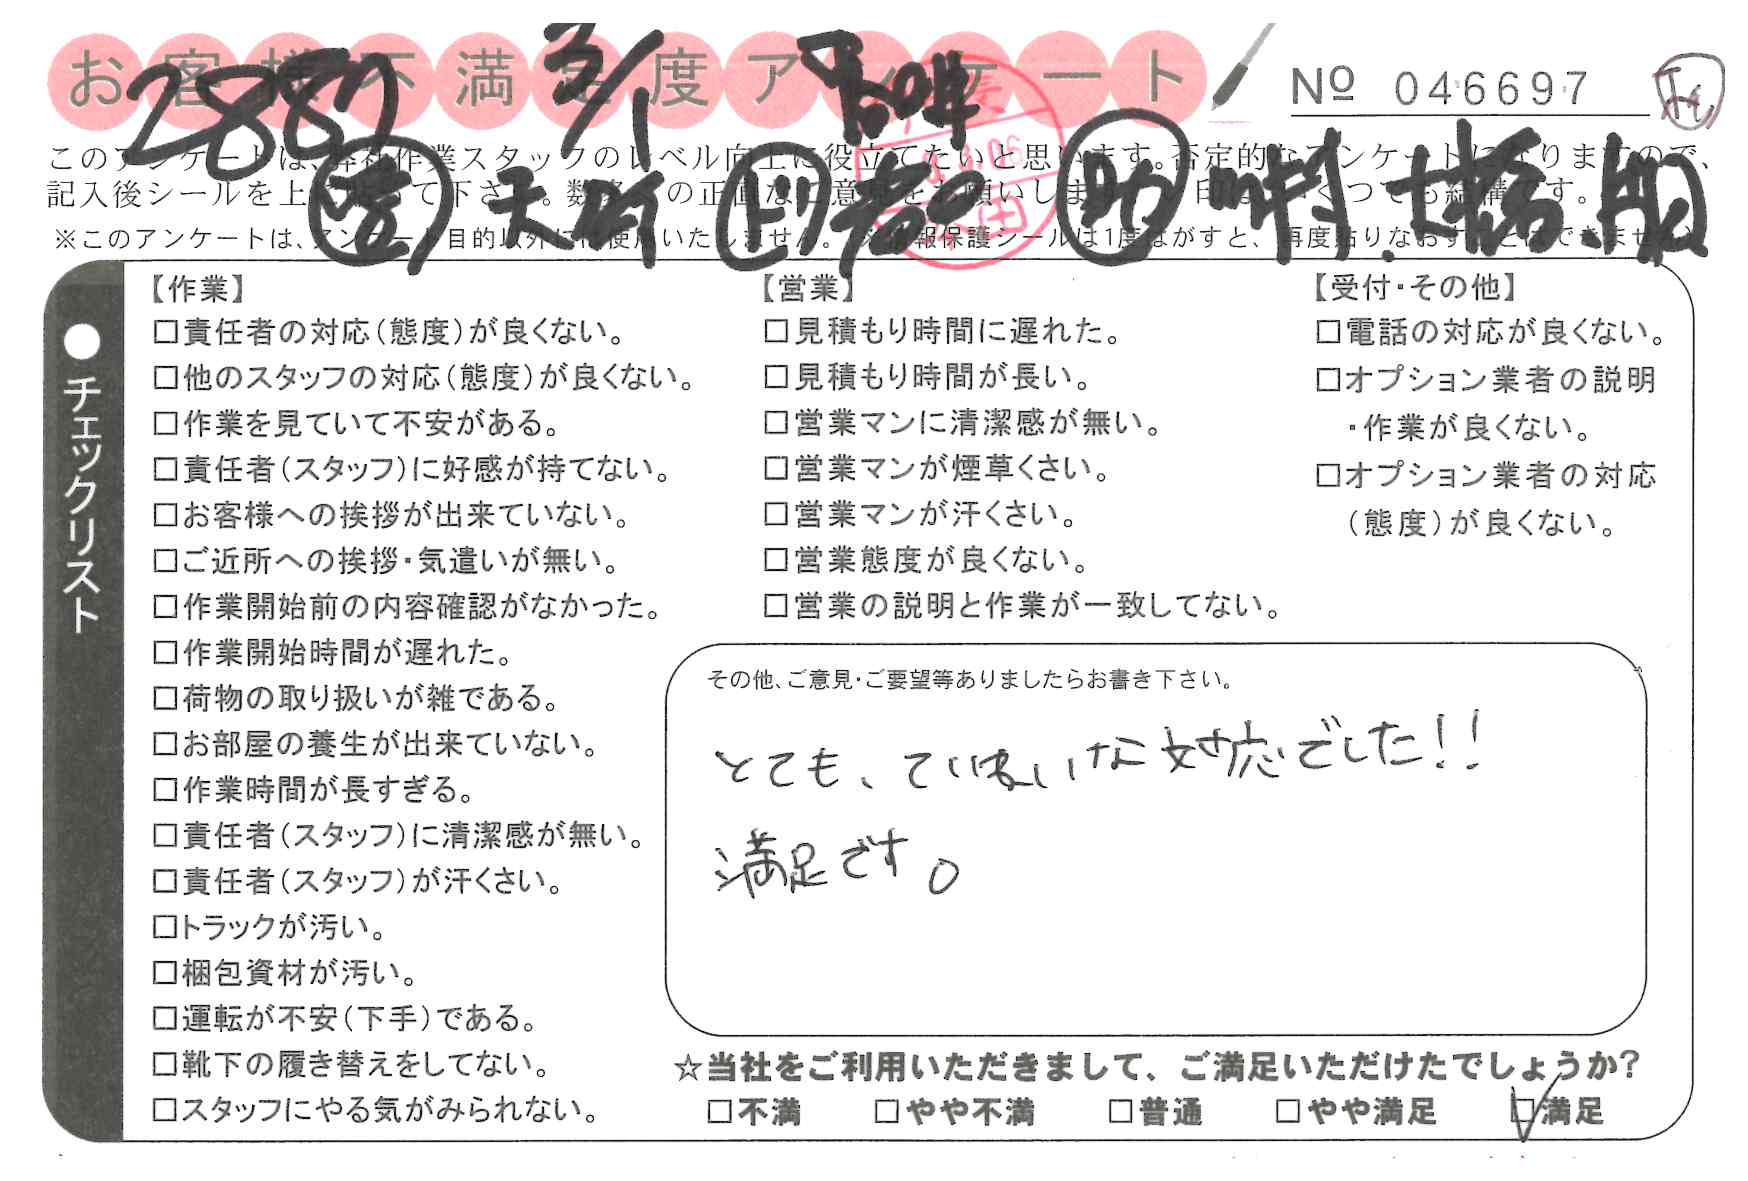 お客様不満足度アンケート
Nº 046697
2887 3/1
このアンケートは、弊社作業スタッフのレベル向上に役立てたいと思います。否定的なアンケートになりますので、
記入後シールを上に貼って下さい。数多くの正直なご意見をお願いします。
※このアンケートは、アンケート目的以外には使用いたしません。(※情報保護シールは1度はがすと、再度貼りなおすことはできません)
●チェックリスト
【作業】
□責任者の対応(態度)が良くない。
□他のスタッフの対応(態度)が良くない。
□作業を見ていて不安がある。
□責任者(スタッフ)に好感が持てない。
□お客様への挨拶が出来ていない。
□ご近所への挨拶・気遣いが無い。
□作業開始前の内容確認がなかった。
□作業開始時間が遅れた。
□荷物の取り扱いが雑である。
□お部屋の養生が出来ていない。
□作業時間が長すぎる。
□責任者(スタッフ)に清潔感が無い。
□責任者(スタッフ)が汗くさい。
□トラックが汚い。
□梱包資材が汚い。
□運転が不安(下手)である。
□靴下の履き替えをしてない。
□スタッフにやる気がみられない。
【営業】
□見積もり時間に遅れた。
□見積もり時間が長い。
□営業マンに清潔感が無い。
□営業マンが煙草くさい。
□営業マンが汗くさい。
□営業態度が良くない。
□営業の説明と作業が一致してない。
【受付・その他】
□電話の対応が良くない。
□オプション業者の説明
・作業が良くない。
□オプション業者の対応
(態度)が良くない。
その他、ご意見・ご要望等ありましたらお書き下さい。
とても、ていねいな対応でした!!
満足です。
☆当社をご利用いただきまして、ご満足いただけたでしょうか?
□不満 □やや不満 □普通 □やや満足 ☑満足